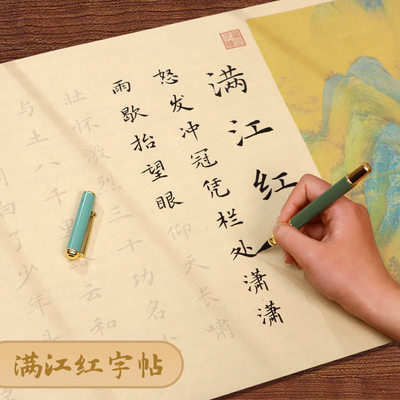 满江红
怒发冲冠凭栏处潇潇
雨歇抬望眼仰天长啸
壮怀激烈三十功名
与土八千里云和
白了少年
满江红字帖